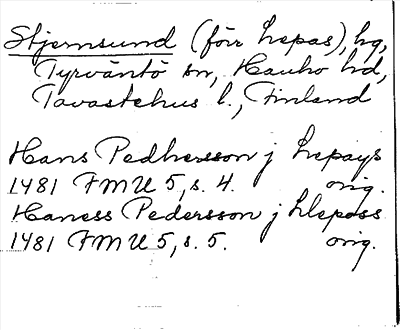 Stjernsund (förr Lepas), hg,
Tyrväntö sn, Hauho hd,
Tavastehus l., Finland
Hans Pedhersson j Lepays
1481 FMU 5, s. 4. orig.
Haness Pedersson j Lleposs
1481 FMU 5, s. 5. orig.